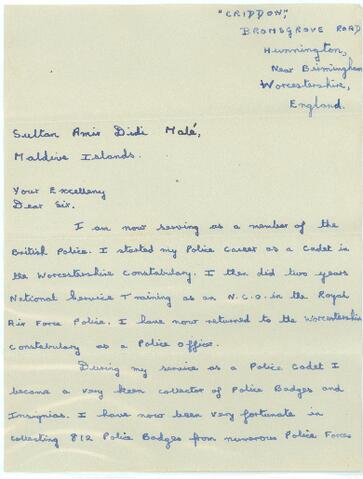 "CRIDDON",
BROMSGROVE ROAD
Hunnington,
Near Birmingham
Worcestershire,
England.
Sultan Amir Didi Malé,
Maldive Islands.
Your Excelleny
Dear Sir.
I am now serving as a member of the
British Police. I started my Police Career as a Cadet in
the Worcestershire Constabulary. I then did two years
National Service Training as an N.C.O. in the Royal
Air Force Police. I have now returned to the Worcestershire
Constabulary as a Police Officer.
During my service as a Police Cadet I
became a very keen collector of Police Badges and
Insignias. I have now been very fortunate in
collecting 812 Police Badges from numorous Police Forces